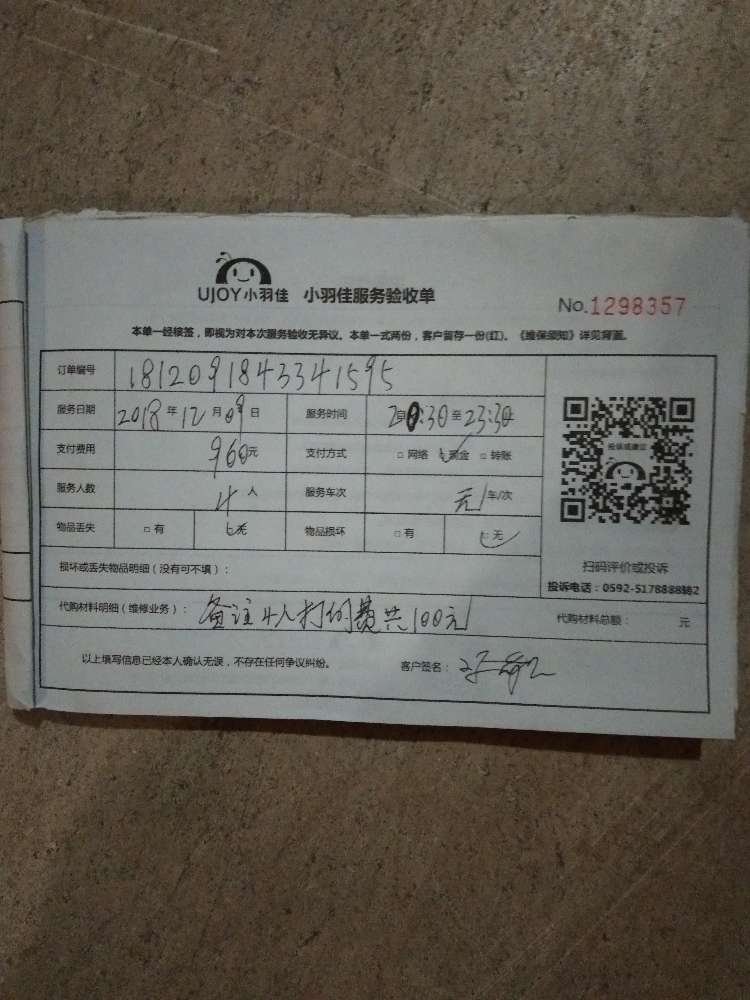 UJOY小羽佳 小羽佳服务验收单
No.1298357
本单一经核签，即视为对本次服务验收无异议。本单一式两份，客户留存一份(红)。《维保须知》详见背面。
订单编号 181209184334 1595
服务日期 2018年12月09日 服务时间 20:30至23:30
支付费用 960元 支付方式 □网络 □现金 □转账
服务人数 4人 服务车次 车/次
物品丢失 □有 □无 物品损坏 □有 □无
投诉或建议
扫码评价或投诉
投诉电话：0592-5178888
损坏或丢失物品明细（没有可不填）：
代购材料明细（维修业务）：备注4人打的费共100元 代购材料总额： 元
以上填写信息已经本人确认无误，不存在任何争议纠纷。 客户签名：